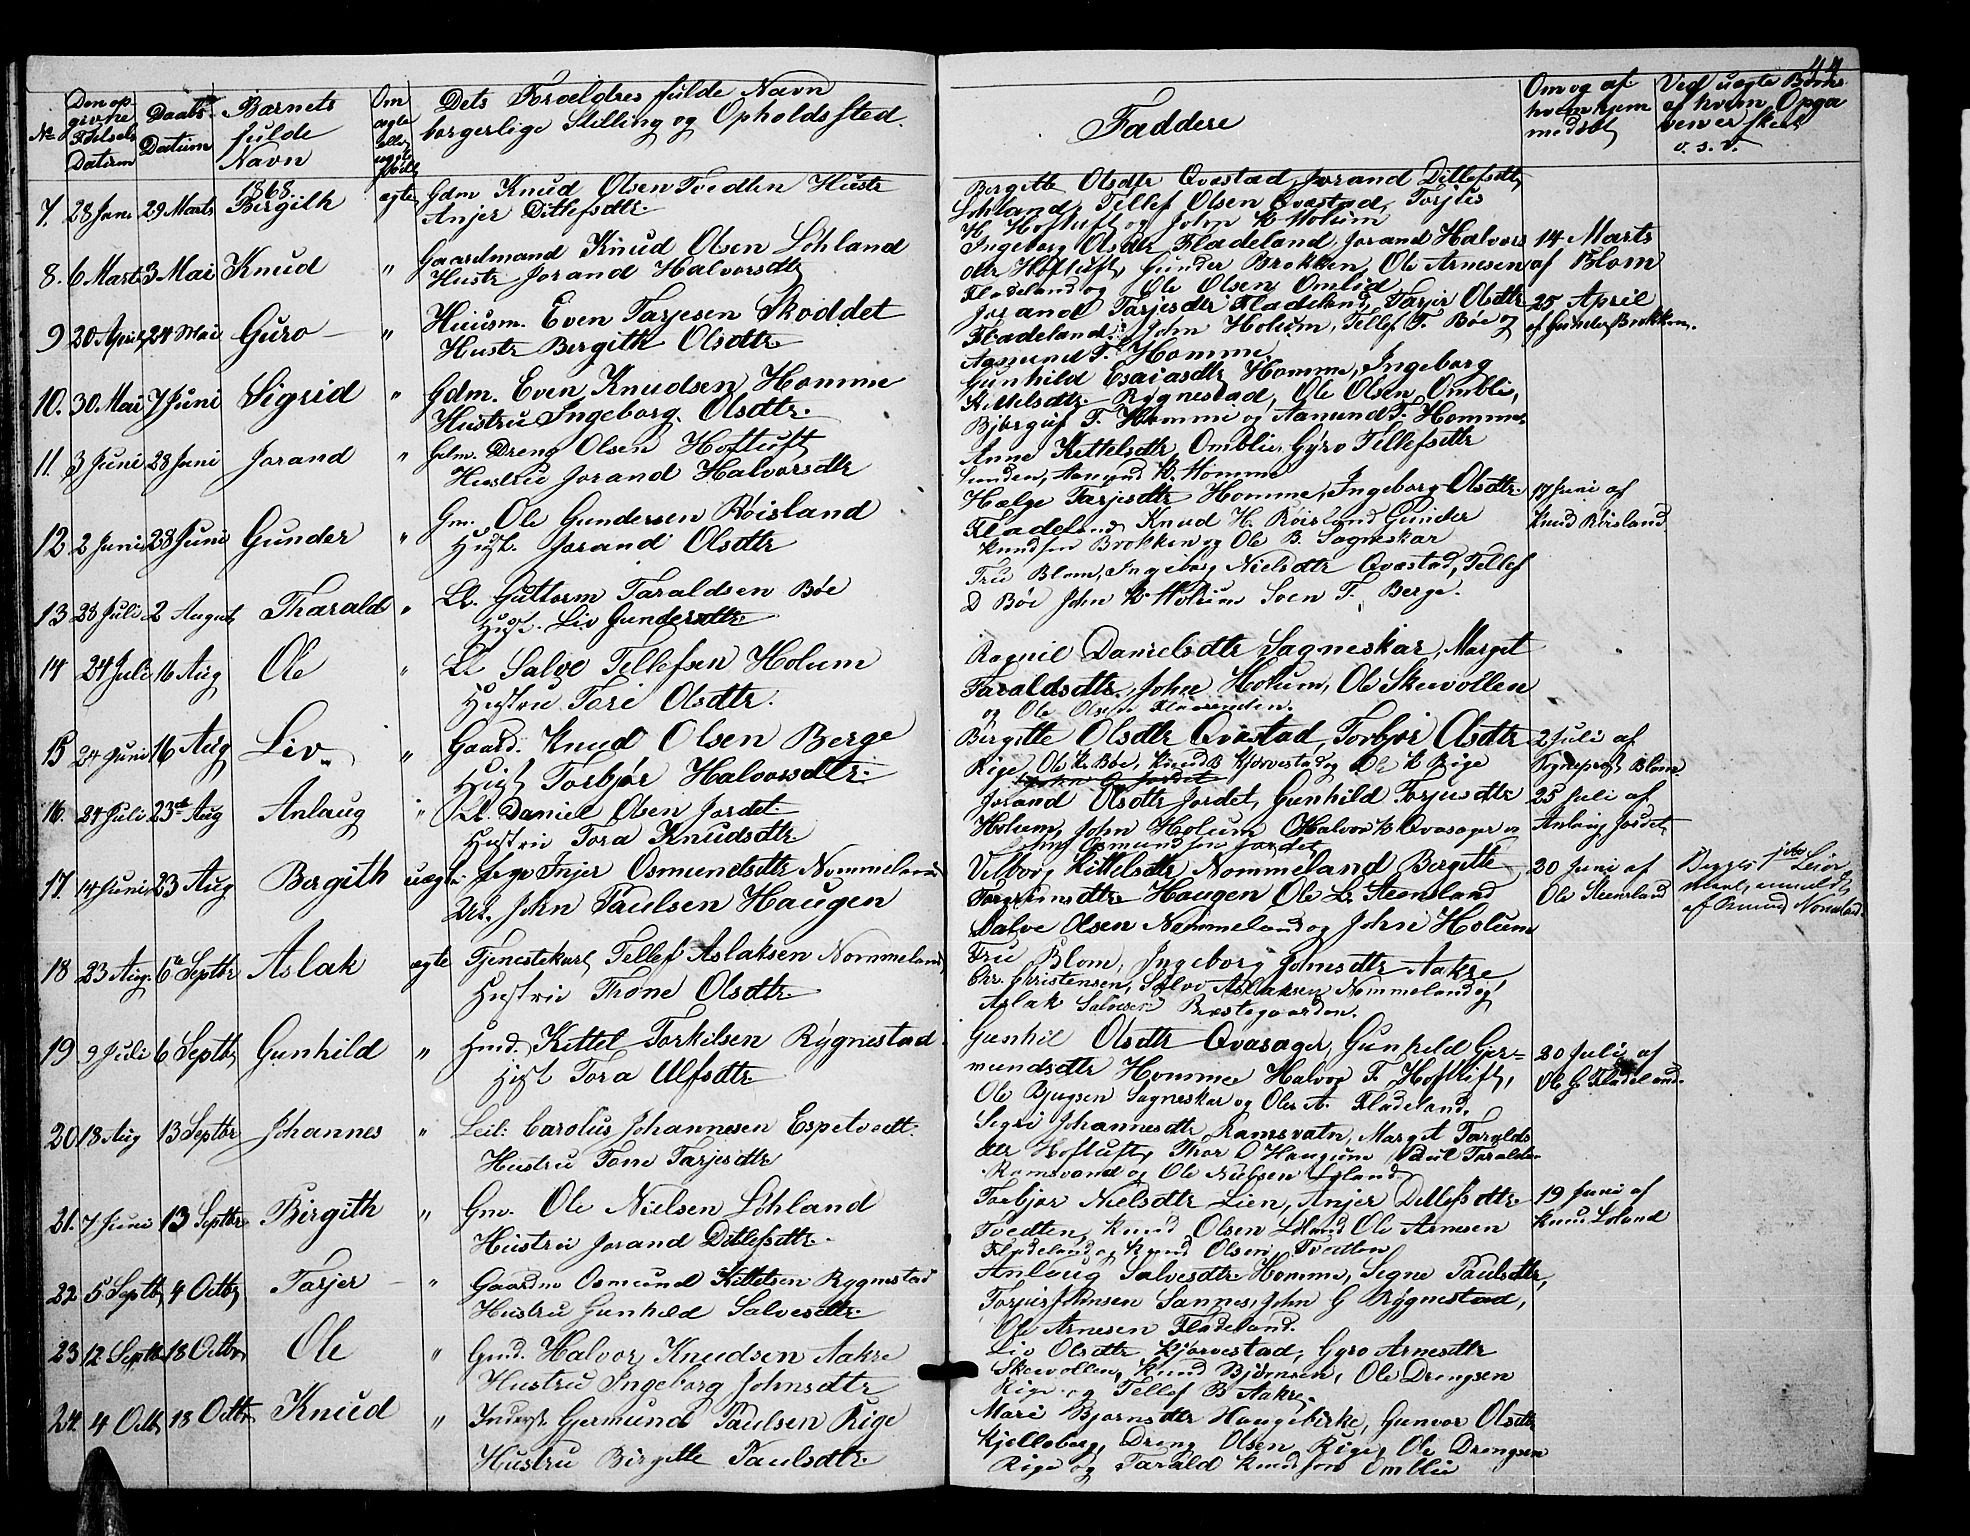 44
No
Den op-
givne
Fødsels
Datum
Daabs-
Datum
Barnets
fulde
Navn
Om
ægte
eller
uægte
født
Dets Forældres fulde Navn
borgerlige Stilling og Opholdssted.
Faddere
Om og af
hvem hjem
medøbt
Ved uægte Børns
af hvem Opga
ven er skeet
o. s. v.
1868.
7. 28 Jan. 29 Marts Birgith ægte Gdm Knud Olsen Tvedten Hustr
Anjer Ditlefsdtr.
Bergitte Olsdtr Qvæstad, Jorand Ditlefsdtr
Løhland, Tellef Olsen Qvæstad, Torjus
H. Hoftuft og John K Holum
8. 6 Marts 3 Mai Knud " Gaardmand Knud Olsen Løhland
Hustr Jorand Halvorsdtr
Ingeborg Olsdtr Fladeland, Jorand Halvors
dtr Hoftuft, Gunder Brokken, Ole Arnesen
Fladeland og Ole Olsen Omlid
14 Marts
af Blom
9 20 April 24 Mai Guro " Huusm. Even Tarjesen Skoddet
Hustr Bergith Olsdtr.
Jorand Tarjesdtr Fladeland, Tarjer Olsdtr
Fladeland, John Holum, Tellef T. Bøe og
Aamund T. Homme.
25 April
af Gunder Brokken.
10. 30. Mai 7 Juni Sigrid " Gdm. Even Knudsen Homme
Hustru Ingeborg Olsdtr.
Gunhild Esaiasdtr Homme, Ingeborg
Kittilsdtr Rygnestad, Ole Olsen Omblie,
Bjørguf T. Homme og Aamund T. Homme.
11. 3 Juni 28 Juni Jorand " Gdm. Dreng Olsen Hoftuft
Hustru Jorand Halvorsdtr
Anne Kettelsdtr Omblie, Gyro Tellefsdtr
Sunden, Aamund K. Homme
12 2 Juni 28 Juni Gunder " Gm. Ole Gundersen Røisland
Hust. Jorand Olsdtr
Hælge Tarjesdtr Homme, Ingeborg Olsdtr.
Fladeland, Knud H. Røisland Gunder
Knudsen Brokken og Ole B. Sagneskar
17 Juni af
Knud Røisland
13 28 Juli 2 August Tharald " Ll. Guttorm Taraldsen Bøe
Hust. Liv Gundersdtr.
Fru Blom, Ingeborg Nielsdtr Qvæstad, Tellef
D Bøe John K Holum Sven T. Berge.
14 24 Juli 16 Aug Ole " Ll Salve Tellefsen Holum
Hustru Tore Olsdtr.
Ragnil Danielsdtr Sagneskar, Marget
Taraldsdtr, John Holum, Ole Skevollen
og Ole Olsen
15 24 Juni 16 Aug Liv " Gaard. Knud Olsen Berge
Hust Torbjør Halvorsdtr.
Birgitte Olsdtr Qvæstad, Torbjør Olsdtr
Rige, Ole K. Bøe, Knud B Kjørvestad og Ole K Rige
2 Juli af
Sognepræst Blom
16. 24 Juli 23de Aug Anlaug " Ll. Daniel Olsen Jordet.
Hustru Tora Knudsdtr.
Jorand Olsdtr Jordet, Gunhild Torjusdtr
Holum, John Holum Halvor K Qvasager og
John Osmundsen Jordet
25 Juli af
Anlaug Jordet
17. 14 Juni 23 Aug Bergith uægte Pige Anjer Osmundsdtr Nommeland
Uk. John Paulsen Haugen
Vilborg Kittelsdtr Nommeland Bergitte
Torgrimsdtr Haugen Ole L. Steensland
Salve Olsen Nommeland og John Holum
20 Juni af
Ole Steensland
af Osmund Nomeland.
18 23 Aug. 6te Septbr Aslak ægte Tjenestekarl Tellef Aslaksen Nommeland
Hustru Thone Olsdtr.
Fru Blom, Ingeborg Johnsdtr Aakre
Chr. Christensen, Salve Aslaksen Nommeland og
Aslak Salvesen Præstegaarden.
19 9 Juli 6 Septbr Gunhild " Gmd. Kittel Torkilsen Rygnestad
Hust Tora Ulfsdtr.
Gunhil Olsdtr Qvasager, Gunhild Ger=
mundsdtr Homme Halvor T. Hoftuft,
Ole Bjugsen Sagneskar og Ole A. Fladeland.
20 Juli af
Ole G. Fladeland.
20 18 Aug 13 Septbr Johannes " Leil. Carolus Johannesen Espetvedt.
Hustru Tone Tarjesdtr
Sigri Johannesdtr Ramsvatn, Margit Taralds
dtr Hoftuft, Thor O Haugum Paul Taraldsen
Ramsvand og Ole Nielsen Løland.
21. 7 Juni 13 Septbr. Birgith " Gm. Ole Nielsen Løhland
Hustru Jorand Ditlefsdtr.
Torbjør Nielsdtr Lien, Anjer Ditlefsdtr.
Tvedten, Knud Olsen Løland Ole Arnesen
Fladeland og Knud Olsen Tvedten
19 Juni af
Knud Løland
22 5 Septbr 4 Octbr Tarjer " Gaardm Osmund Kittelsen Rygnestad
Hustru Gunhild Salvesdtr.
Anlaug Salvesdtr Homme, Signe Paulsdtr,
Torjus Johnsen Sannes, John G Rygnestad,
Ole Arnesen Fladeland.
23 12 Septbr 18 Octbr Ole " Gmd. Halvor Knudsen Aakre
Hustru Ingeborg Johnsdtr
Liv Olsdtr Kjørvestad, Gyro Arnesdtr
Skevollen, Knud Bjørnsen, Ole Drengsen
Rige og Tellef B Aakre.
24. 4 Octb 18 Octbr Knud " Inderst. Germund Paulsen Rige
Hustru Birgitte Paulsdtr.
Mari Bjørnsdtr Haugebirke, Gunvor Olsdtr
Kjelleberg, Dreng Olsen Rige, Ole Drengsen
Rige og Tarald Knudsen Omblie